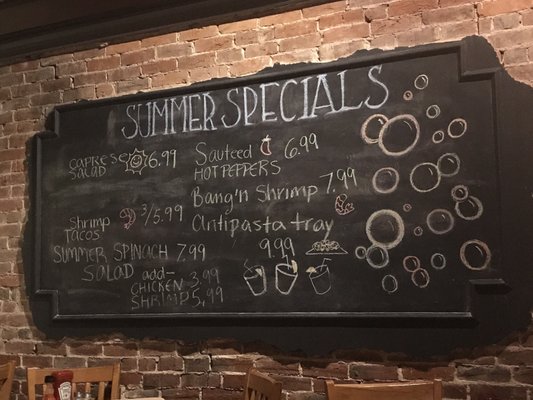 SUMMER SPECIALS
CAPRESE SALAD 6.99
Sauteed HOT PEPPERS 6.99
Bang'n Shrimp 7.99
Shrimp TACOS 3/5.99
Antipasta tray 9.99
SUMMER SPINACH SALAD 7.99
add-
CHICKEN 3.99
SHRIMP 5.99